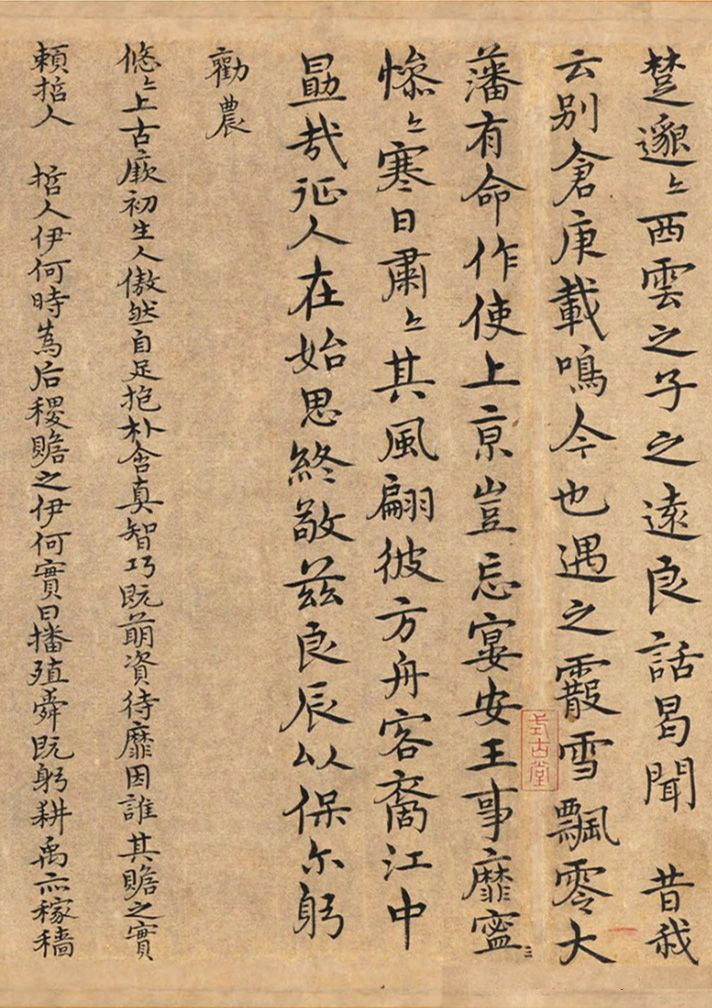 楚邈〻西雲之子之遠良話曷聞 昔我
云别倉庚載鳴今也遇之霰雪飄零大
藩有命作使上亰豈忘宴安王事靡寧
慘〻寒日肅〻其風翩彼方舟容裔江中
勗哉征人在始思終敬茲良辰以保尔躬
勸農
悠〻上古厥初生人傲然自足抱朴含真智巧既萌資待靡因誰其贍之實
賴哲人 哲人伊何時為后稷贍之伊何實曰播殖舜既躬耕禹亦稼穡
式古堂
三